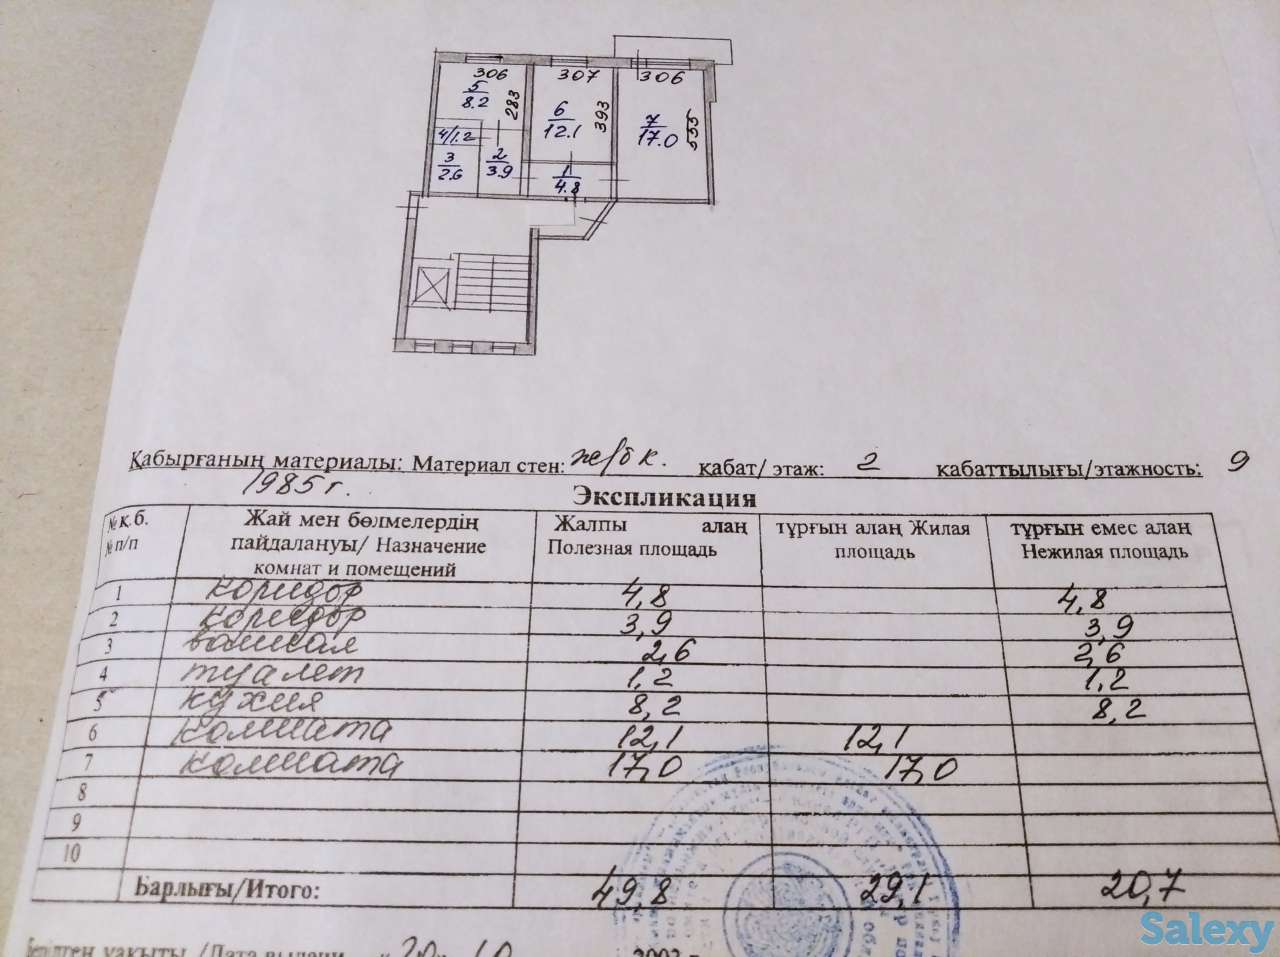 306 307 306
5 8.2 283 6 12.1 393 7 17.0 555
4/1.2
3 2.6 2 3.9 1 4.8
Қабырғаның материалы: Материал стен: ж/б к. қабат/ этаж: 2 қабаттылығы/этажность: 9
1985 г.
Экспликация
№ қ.б. Жай мен бөлмелердің Жалпы алаң тұрғын алаң Жилая тұрғын емес алаң
№ п/п пайдалануы/ Назначение Полезная площадь площадь Нежилая площадь
комнат и помещений
1 коридор 4,8 4,8
2 коридор 3,9 3,9
3 ванная 2,6 2,6
4 туалет 1,2 1,2
5 кухня 8,2 8,2
6 комната 12,1 12,1
7 комната 17,0 17,0
8
9
10
Барлығы/Итого: 49,8 29,1 20,7
Берілген уақыты /Дата выдачи «20» 10 2003 г.
Salexy